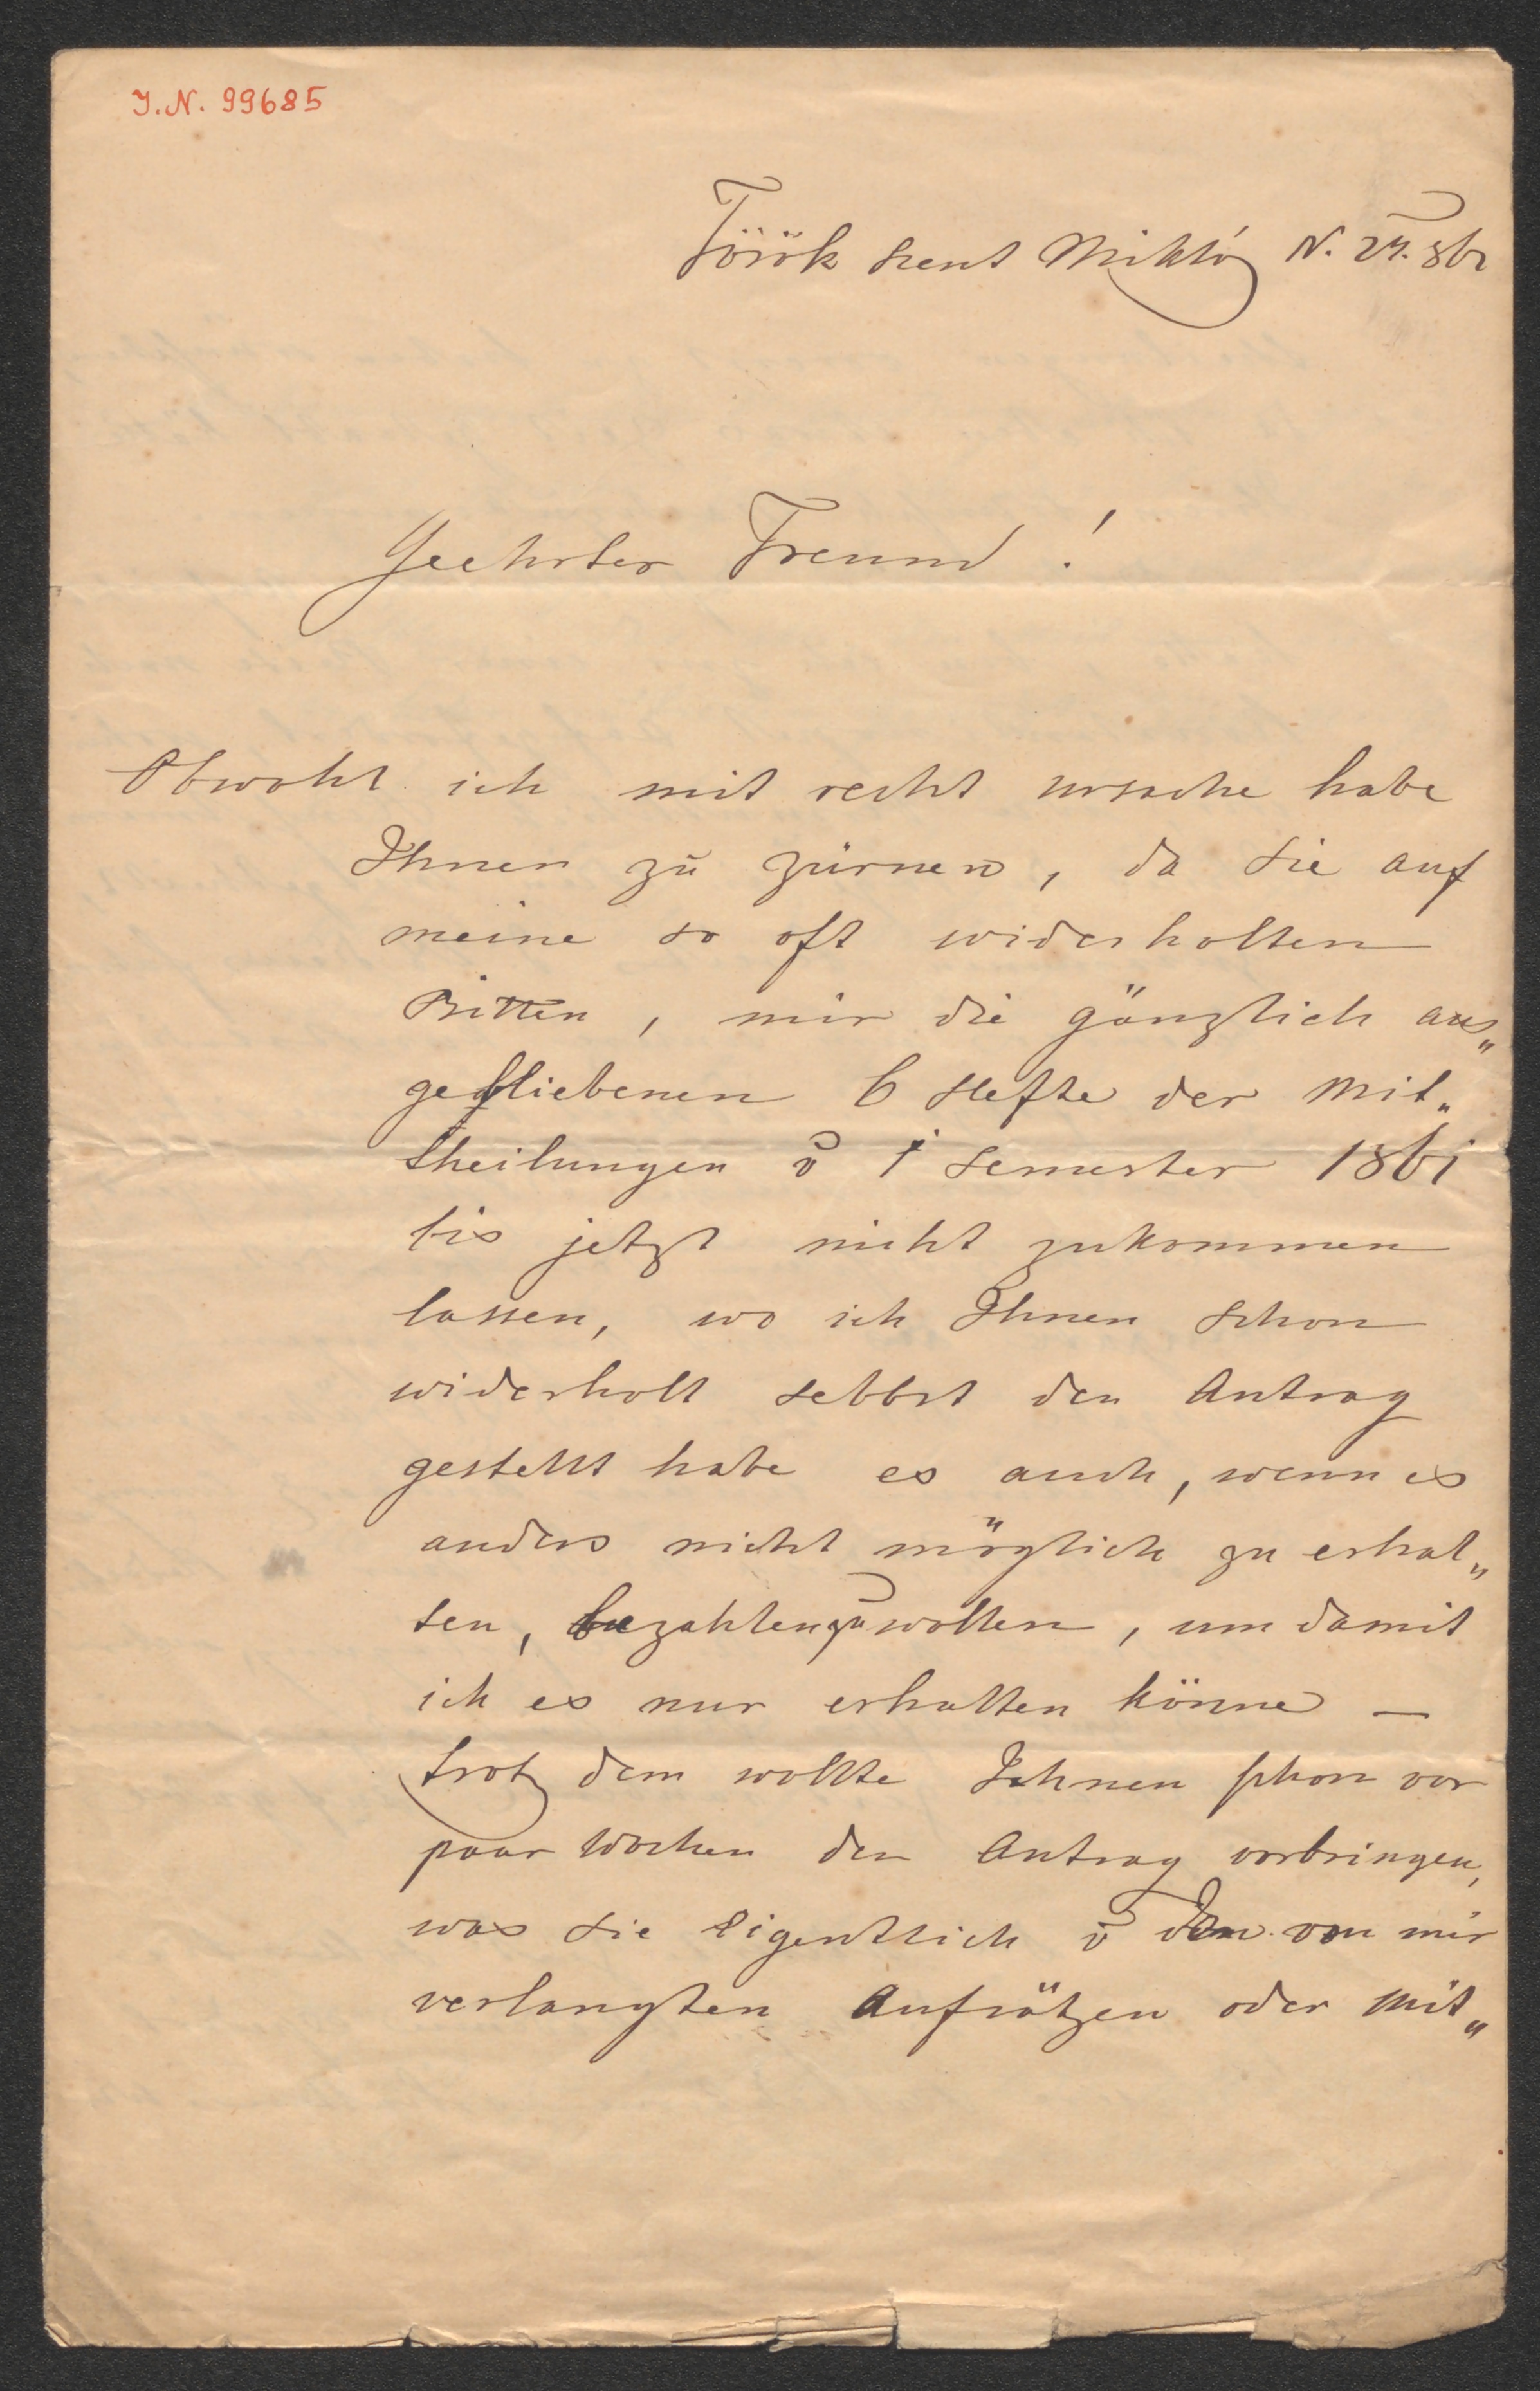 I.N. 99685
Török Szent Mikló N. 27. 861
Geehrter Freund!
Obwohl ich mit recht ursache habe
Ihnen zu zürnen, da Sie auf
meine so oft widerholten
Bitten, mir die gänzlich aus„
gebliebenen 6 Hefte der Mit„
theilungen v 1 Semester 1861
bis jetzt nicht zukommen
lassen, wo ich Ihnen schon
widerholt selbst den Antrag
gestellt habe es auch, wenn es
anders nicht möglich zu erhal„
ten, bezahlen zu wollen, um damit
ich es nur erhalten könne —
trotz dem wollte Ihnen schon vor
paar Wochen den Antrag vorbringen,
was Sie eigentlich v den von mir
verlangten Aufsätzen oder Mit„